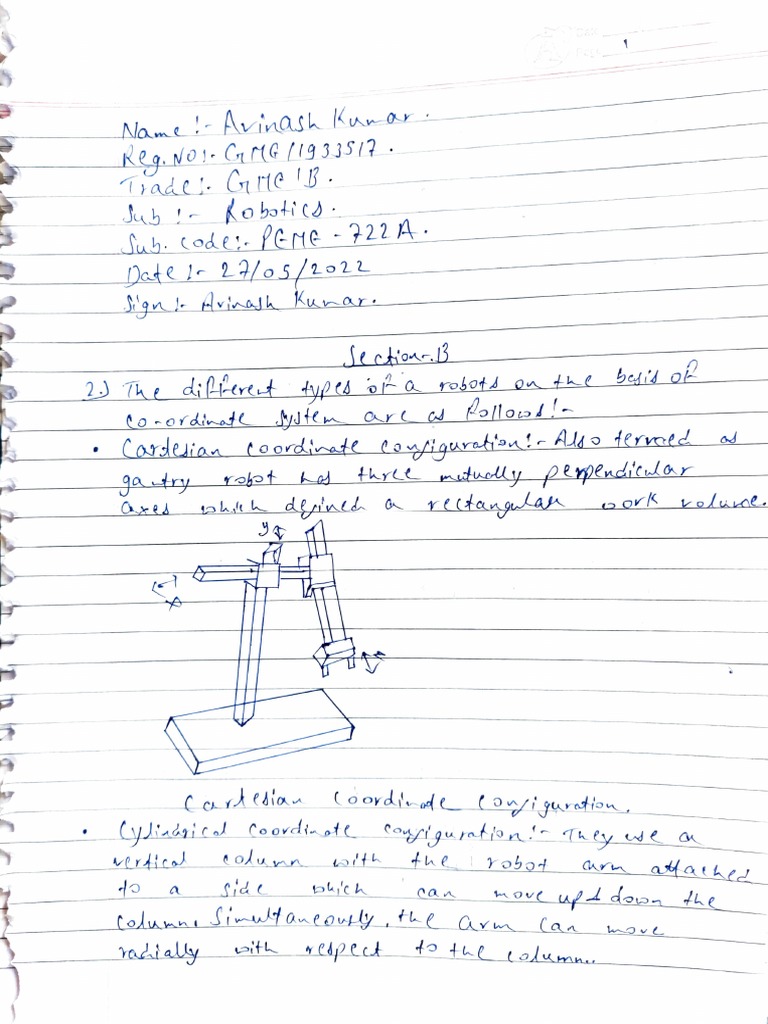 1
Name :- Avinash Kumar.
Reg. NO:- GME/1933517.
Trade:- GME 'B.
Sub :- Robotics.
Sub. code:- PEME - 722A.
Date :- 27/05/2022
Sign :- Avinash Kumar.
Section-.B
2.) The different types of a robots on the basis of
co-ordinate system are as follows:-
• Cartesian coordinate configuration:- Also termed as
gantry robot has three mutually perpendicular
axes which defined a rectangular work volume.
y
x
Cartesian Coordinate Configuration.
• Cylindrical coordinate configuration:- They use a
vertical column with the robot arm attached
to a side which can move up & down the
column. Simultaneously, the arm can move
radially with respect to the column..